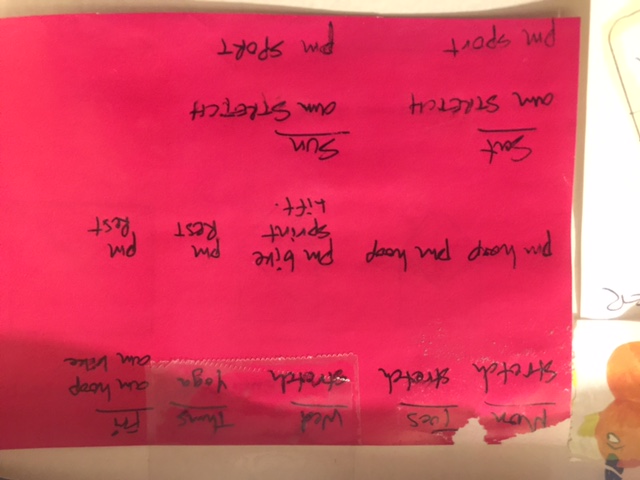 Mon Tues Wed Thurs Fri
stretch stretch stretch Yoga am hoop
am bike
pm hoop pm hoop pm bike pm pm
sprint REST Rest
Lift.
Sat Sun
am STRETCH am STRETCH
pm SPORT pm SPORT